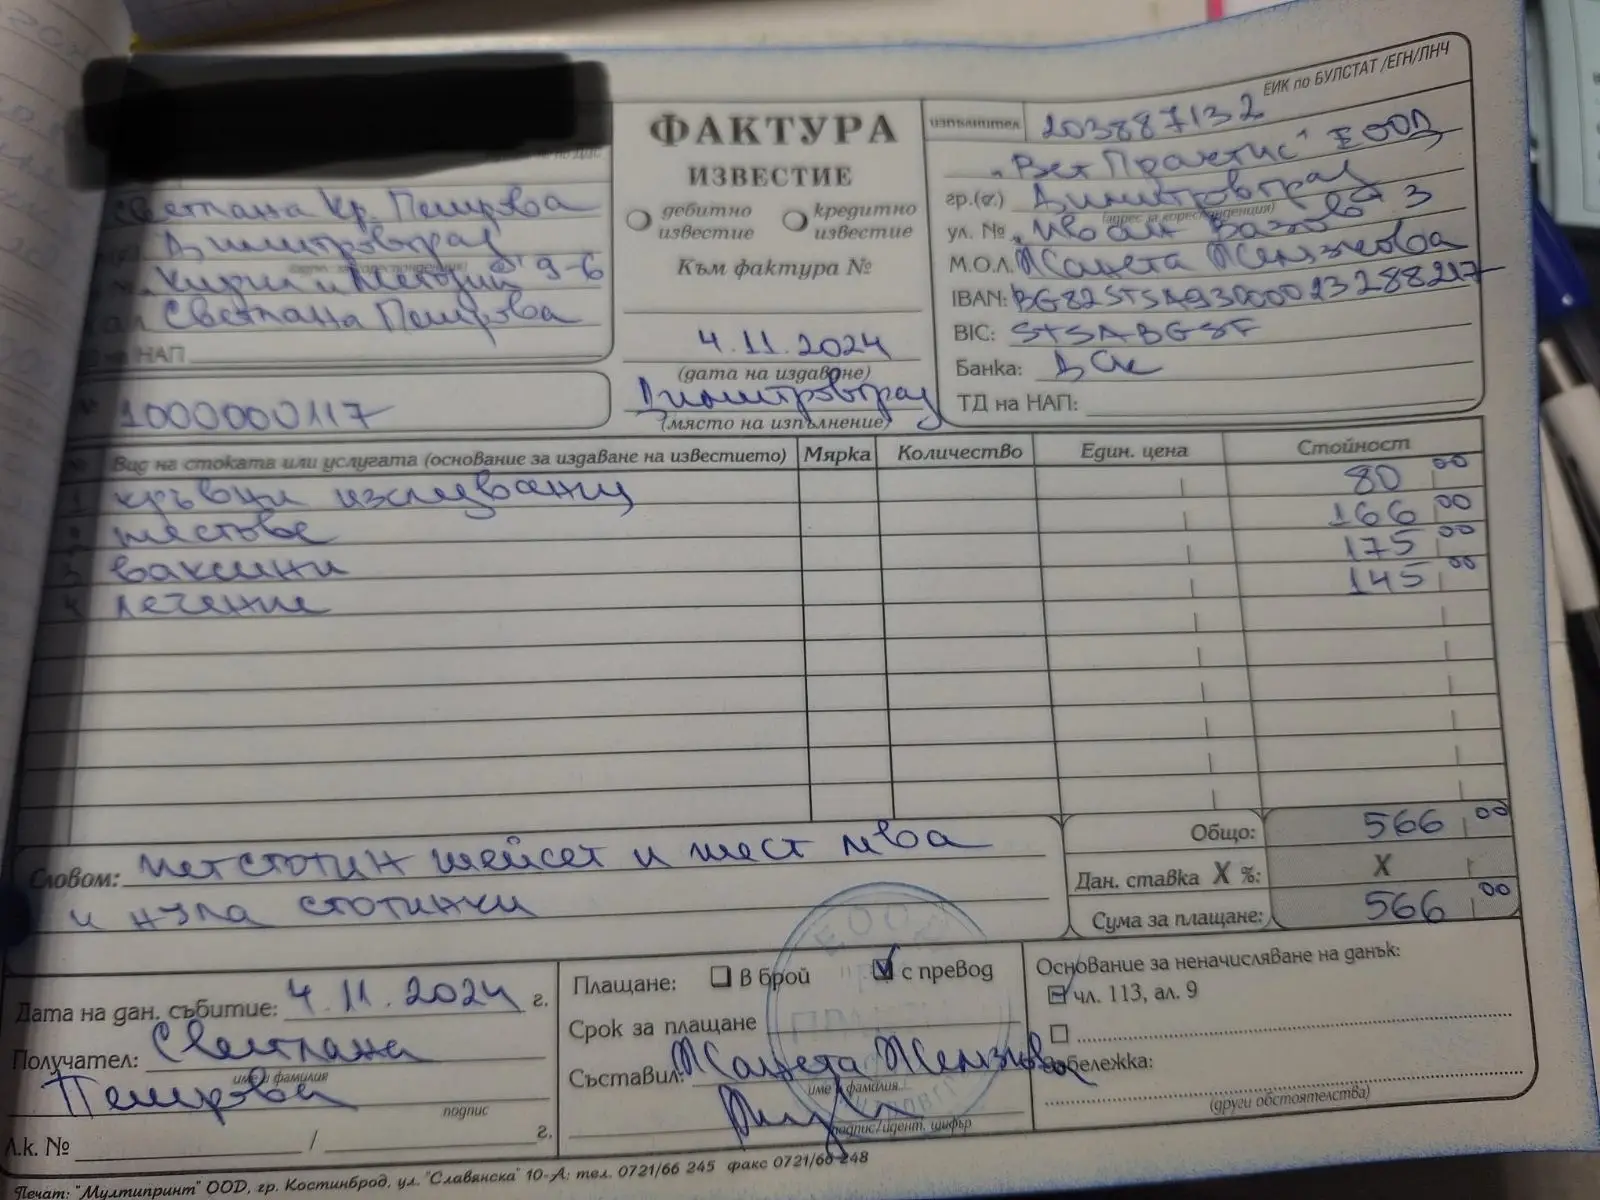 Светлана Кр. Петрова
Димитровград
Кирил и Методий 9-6
Светлана Петрова
на НАП
№ 1000000117
ФАКТУРА
ИЗВЕСТИЕ
дебитно известие
кредитно известие
Към фактура №
4.11.2024
(дата на издаване)
Димитровград
(място на изпълнение)
ЕИК по БУЛСТАТ /ЕГН/ЛНЧ
изпълнител 203887132
"Вет Практис" ЕООД
гр.(с.) Димитровград
(адрес за кореспонденция)
ул. № "Иван Вазов" 3
М.О.Л. Жанета
IBAN: BG82STSA93000023288217
BIC: STSABGSF
Банка: ДСК
ТД на НАП:
№ Вид на стоката или услугата (основание за издаване на известието) Мярка Количество Един. цена Стойност
1 кръвни изследвания 80 00
2 тестове 166 00
3 ваксини 175 00
4 лечение 145 00
Общо: 566 00
Словом: петстотин шейсет и шест лева
и нула стотинки
Дан. ставка X %: X
Сума за плащане: 566 00
Дата на дан. събитие: 4.11.2024 г.
Получател: Светлана
име и фамилия
Петрова
подпис
Л.к. № / г.
Плащане: В брой с превод
Срок за плащане
Съставил: Жанета
име и фамилия
подпис/идент. шифър
Основание за неначисляване на данък:
чл. 113, ал. 9
Забележка:
(други обстоятелства)
Печат: "Мултипринт" ООД, гр. Костинброд, ул. "Славянска" 10-А; тел. 0721/66 245 факс 0721/66 248